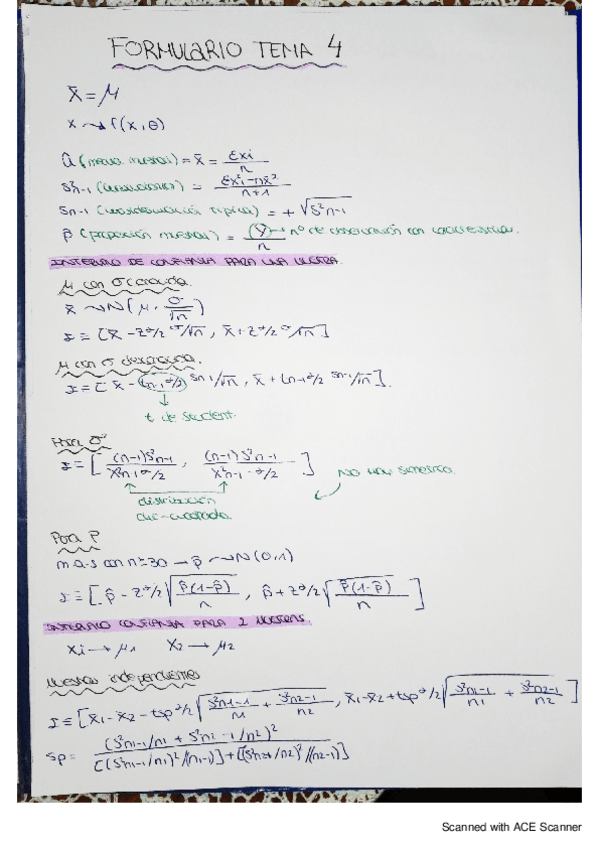 FORMULARIO TEMA 4
x̄ = μ
x → f(x, θ)
(media muestral) = x̄ = Σxi / n
S²n-1 (cuasivarianza) = Σx²i - nx̄² / n+1
Sn-1 (cuasidesviación típica) = + √S²n-1
p̂ (proporción muestral) = (Y) → nº de observación con características / n
INTERVALO DE CONFIANZA PARA UNA MUESTRA.
μ con σ conocida.
x̄ → N(μ, σ/√n)
I = [x̄ - Z α/2 σ/√n, x̄ + Z α/2 σ/√n]
μ con σ desconocida.
I = [x̄ - (tn-1 α/2) Sn-1/√n, x̄ + tn-1 α/2 Sn-1/√n].
t de student.
Para σ²
I = [(n-1)S²n-1 / X²n-1 α/2, (n-1)S²n-1 / X²n-1 -α/2]
NO hay simetría.
distribución
chi-cuadrada.
Para P
m.a.s con n≥30 → p̂ → N(0,1)
I = [p̂ - Z α/2 √(p̂(1-p̂) / n), p̂ + Z α/2 √(p̂(1-p̂) / n)]
INTERVALO CONFIANZA PARA 2 MUESTRAS.
X1 → μ1 X2 → μ2
Muestras independientes
I = [x̄1 - x̄2 - tSp α/2 √(S²n1-1 / n1 + S²n2-1 / n2), x̄1 - x̄2 + tSp α/2 √(S²n1-1 / n1 + S²n2-1 / n2)]
Sp = (S²n1-1/n1 + S²n2-1/n2)² / [(S²n1-1/n1)²/(n1-1)] + [(S²n2-1/n2)²/(n2-1)]
Scanned with ACE Scanner